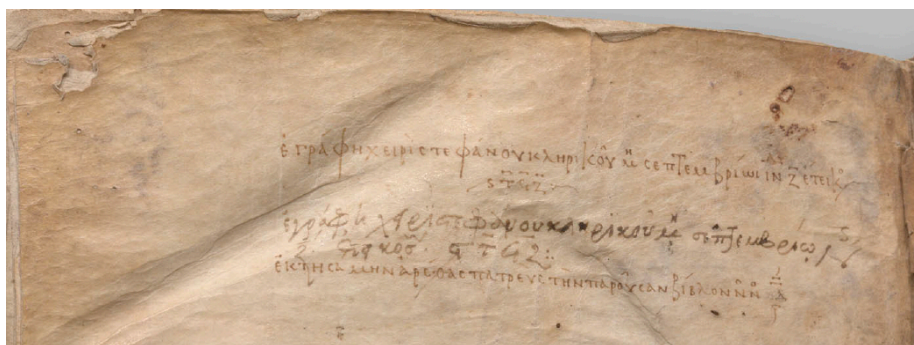 ἐγράφη χειρὶ στεφάνου κληρικοῦ μ σεπτεμβρίωι ἰν ζ ἔτει κο
ϛτϟζ
ἐγράφη χειρὶ στεφάνου κληρικοῦ μ σεπτεμβρίω
κοσ ϛτϟζ
ἐκτησάμην ἀρέθας πατρεὺς τὴν παροῦσαν βίβλον